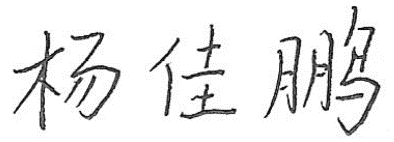 杨佳鹏